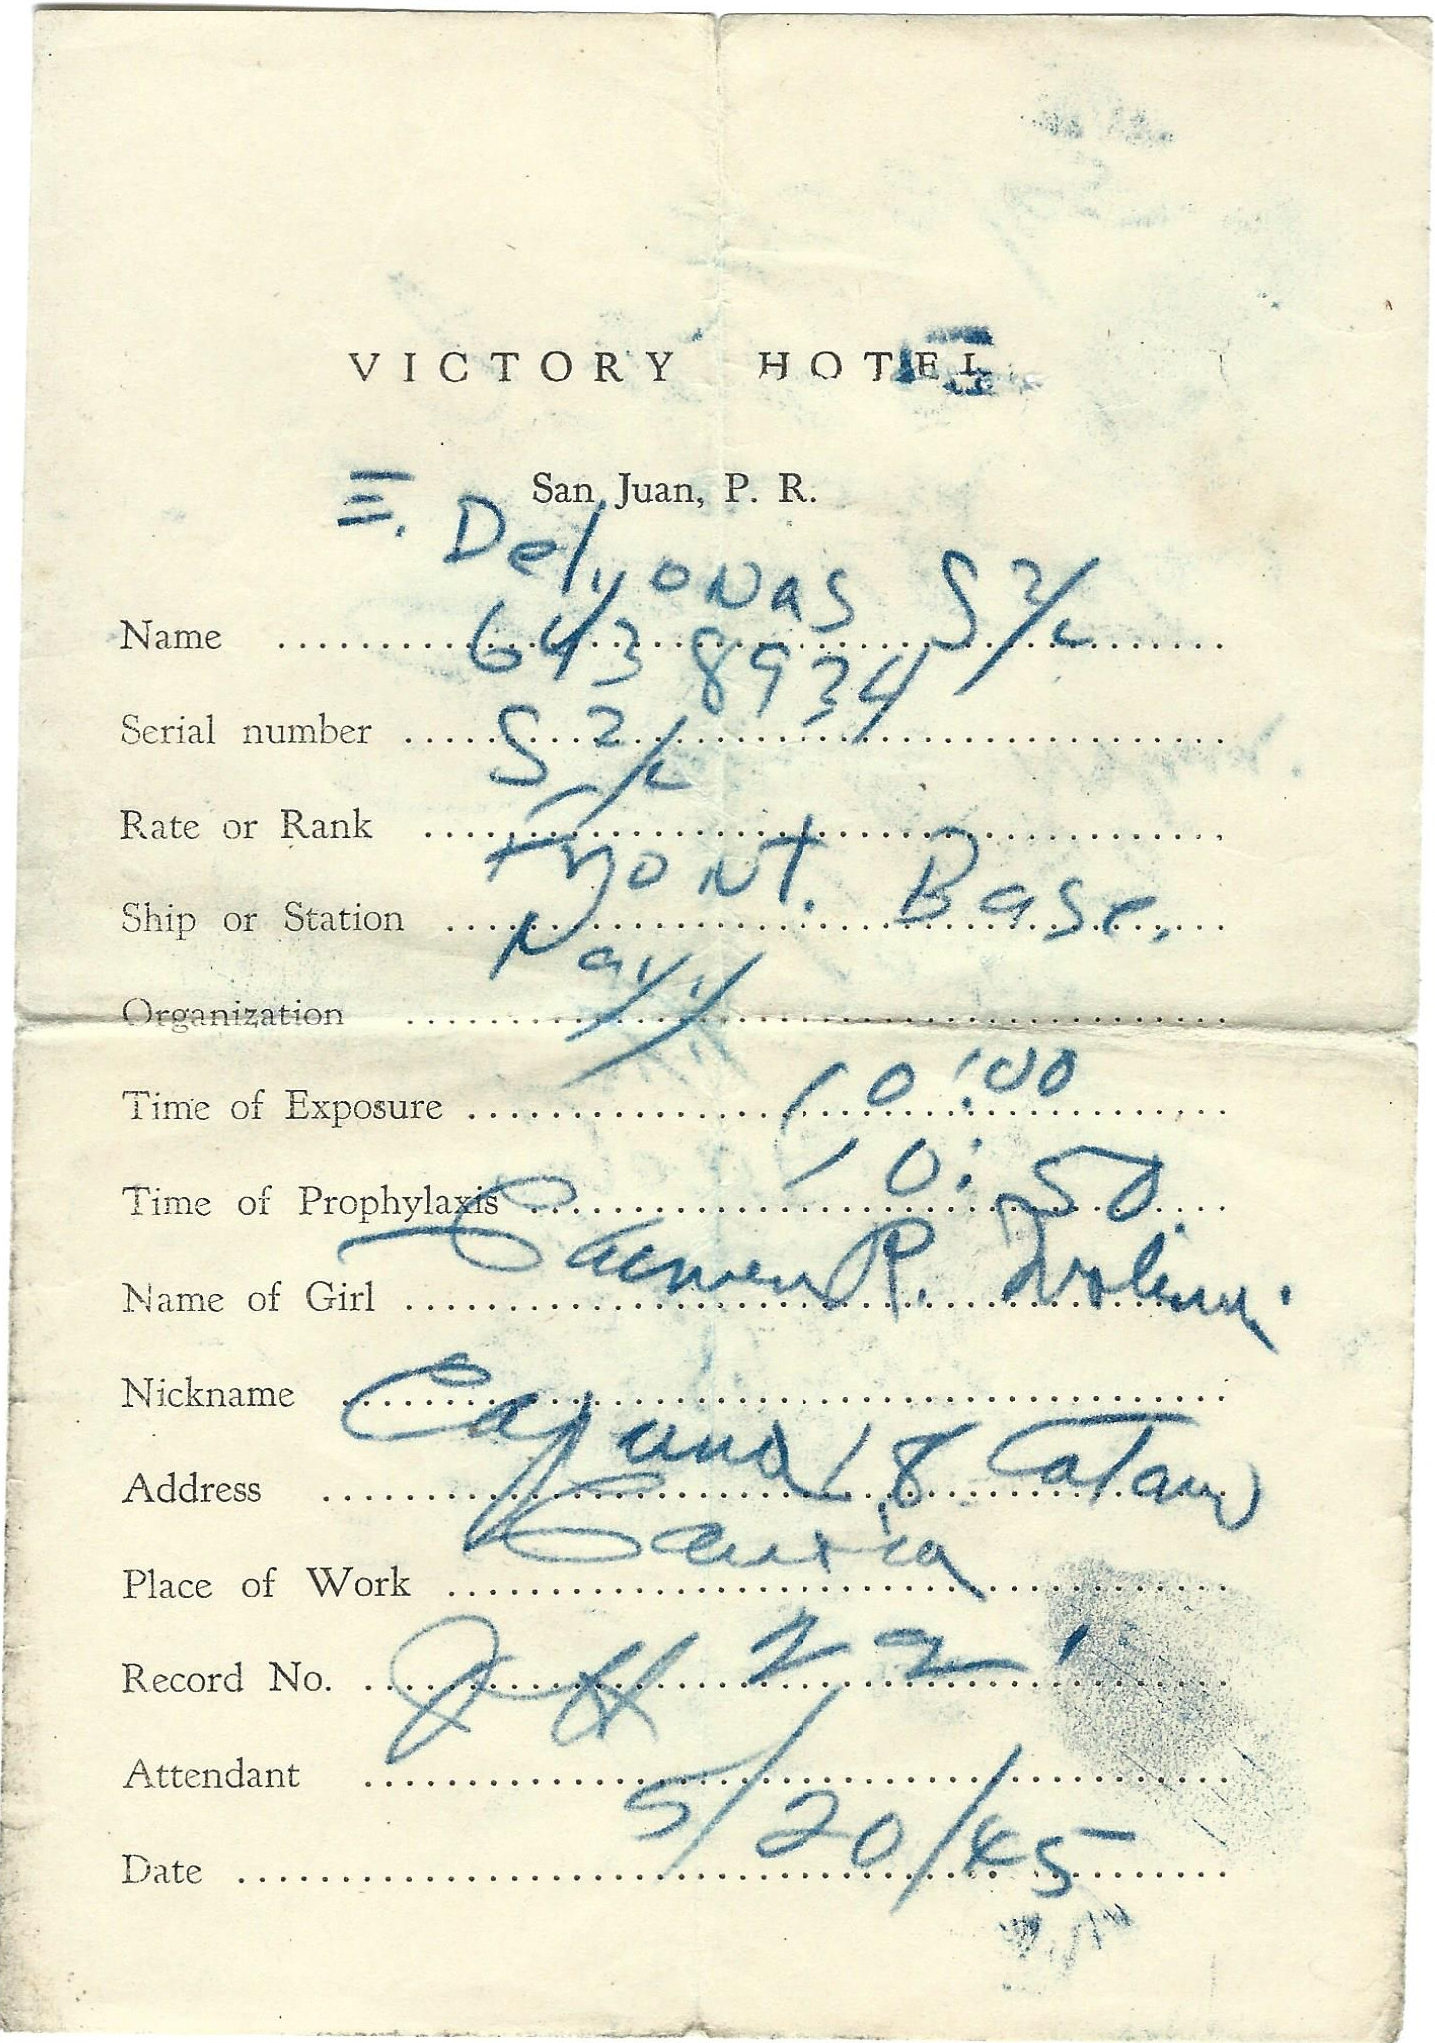 VICTORY HOTEL
San Juan, P. R.
Name E. Delyonas S 2/c
Serial number 643 8934
Rate or Rank S 2/c
Ship or Station Front. Base.
Organization Navy
Time of Exposure 10:00
Time of Prophylaxis 10:50
Name of Girl Carmen R. Molina.
Nickname
Address 18 Catano
Place of Work
Record No. 22
Attendant
Date 5/20/45